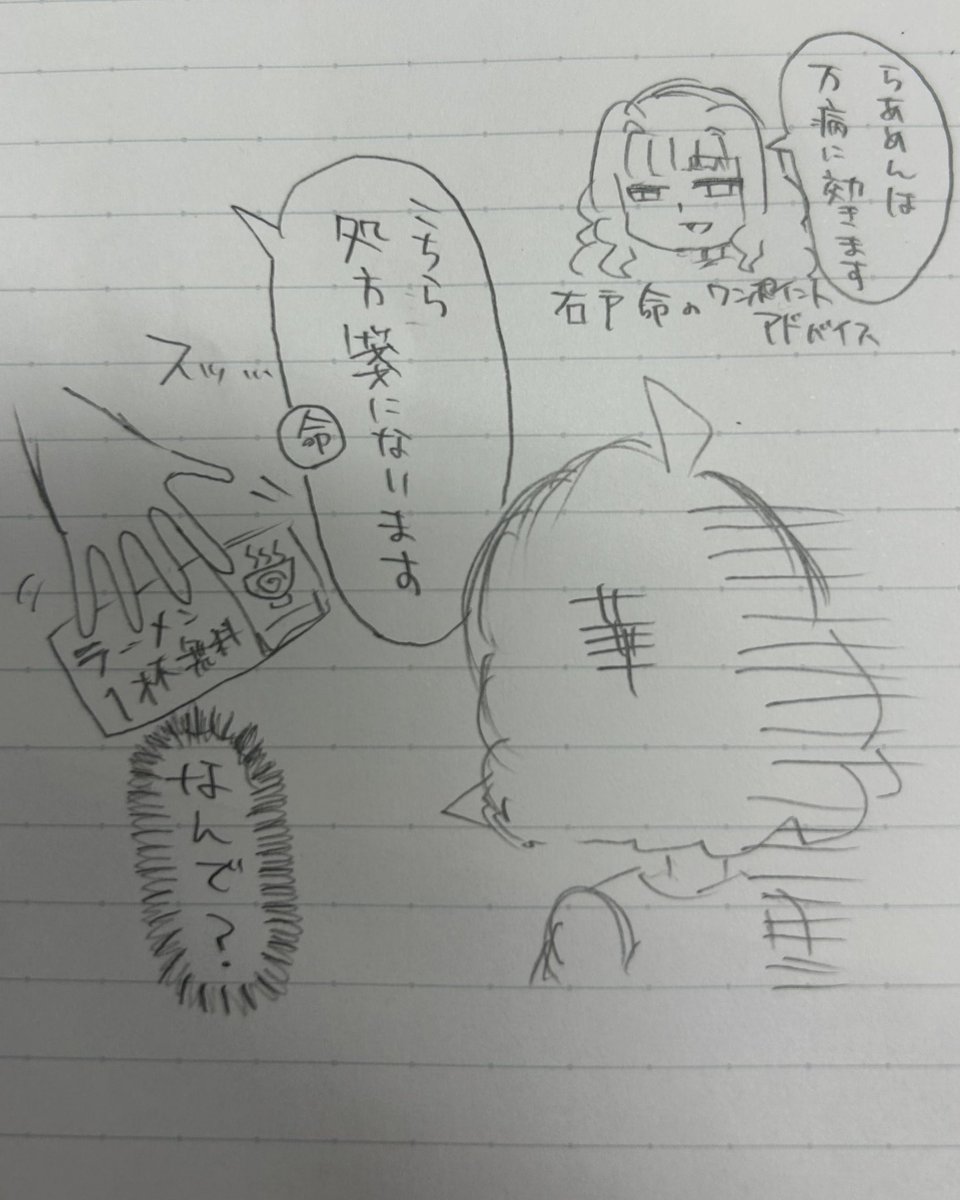 らあめんは
万病に効きます
右戸命のワンポイント
アドバイス
こちら
処方箋になります
命
スッ…
ラーメン
1杯無料
なんで?